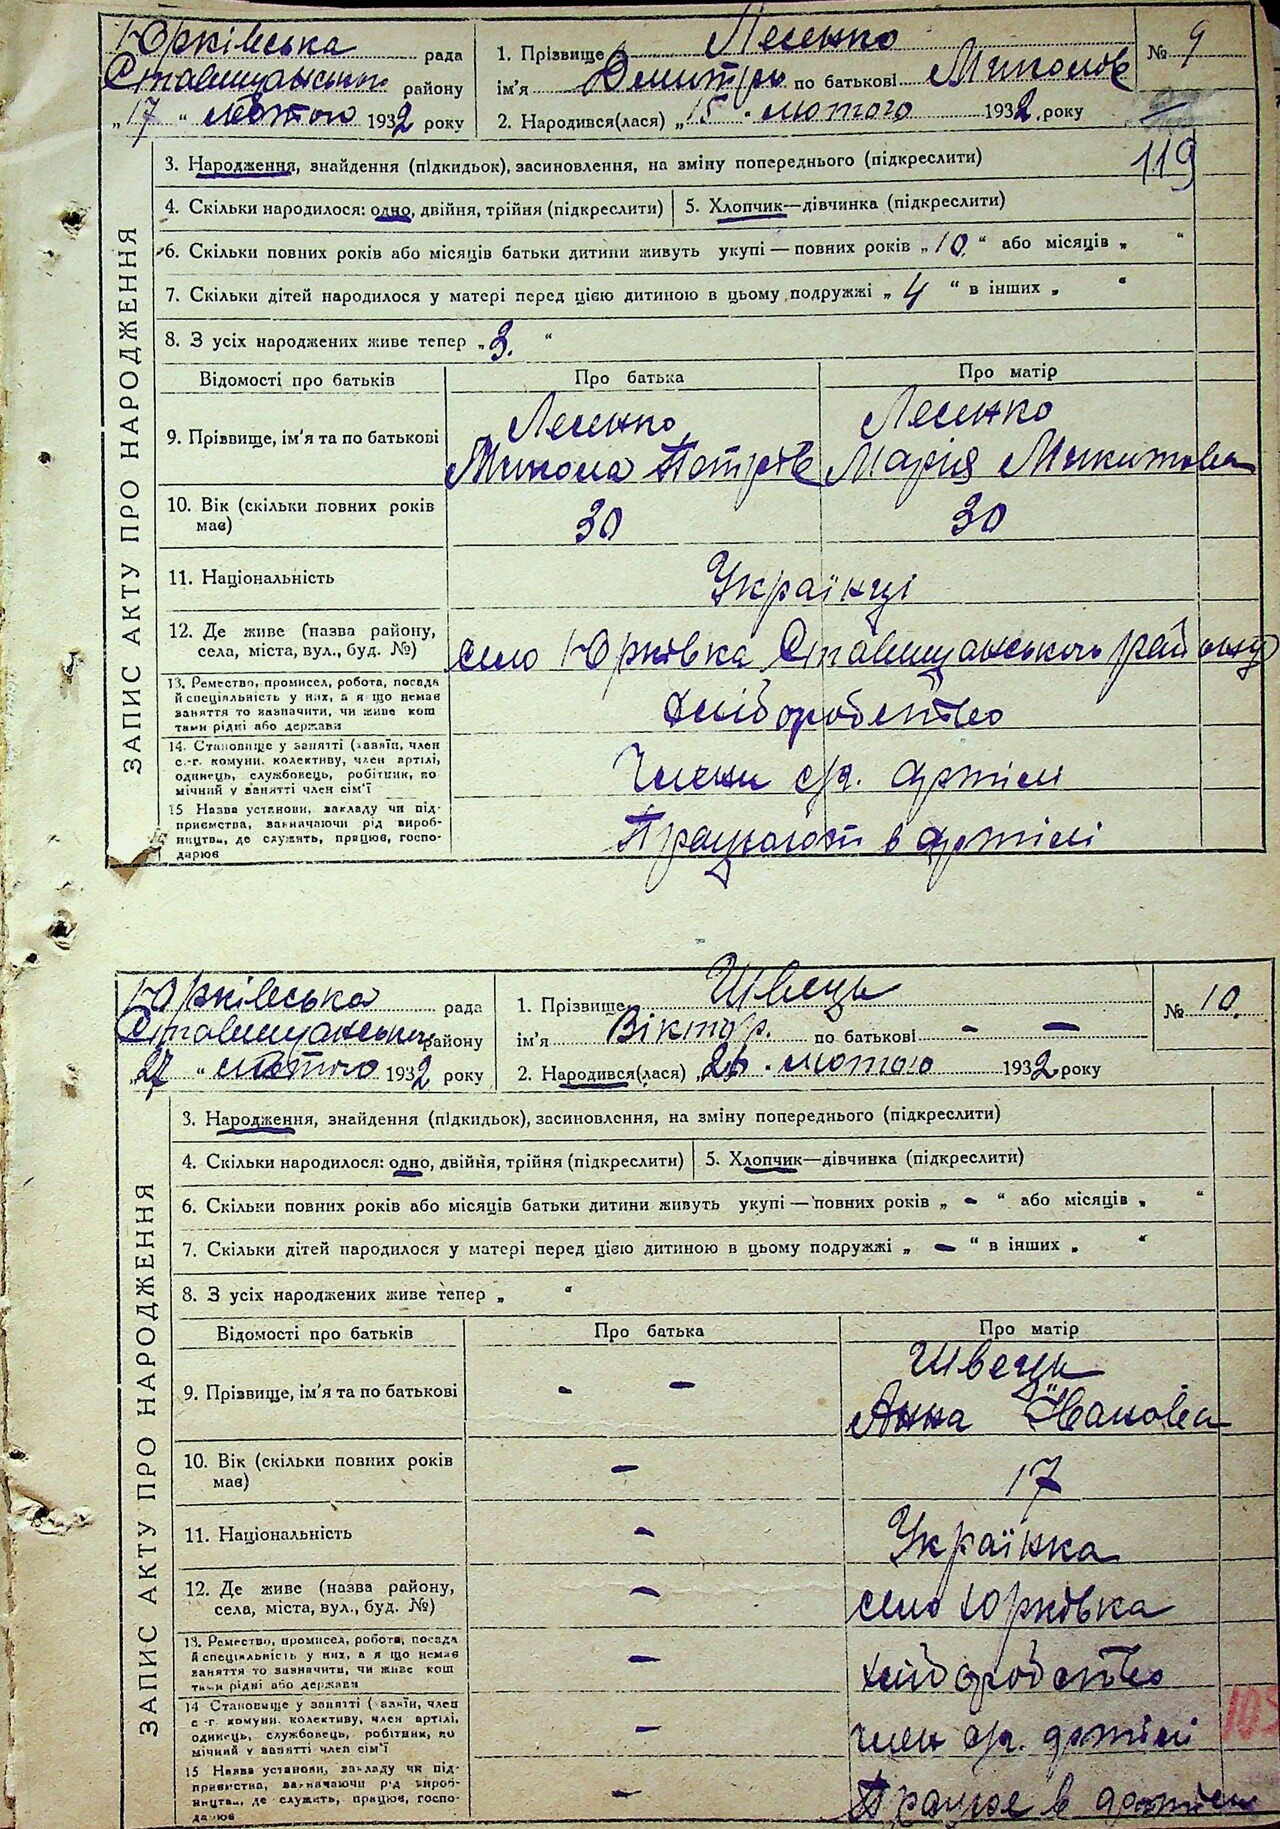 Юрківська рада
Ставищанського району
„17 “ лютого 1932 року
1. Прізвище Лесенко
ім'я Дмитро по батькові Миколов
2. Народився(лася) „15 . лютого 1932 року
№ 9
119
ЗАПИС АКТУ ПРО НАРОДЖЕННЯ
3. Народження, знайдення (підкидьок), засиновлення, на зміну попереднього (підкреслити)
4. Скільки народилося: одно, двійня, трійня (підкреслити) 5. Хлопчик—дівчинка (підкреслити)
6. Скільки повних років або місяців батьки дитини живуть укупі — повних років „10“ або місяців „ “
7. Скільки дітей народилося у матері перед цією дитиною в цьому подружжі „ 4 “ в інших „ “
8. З усіх народжених живе тепер „3. “
Відомості про батьків Про батька Про матір
9. Прізвище, ім'я та по батькові
Лесенко Лесенко
Микола Петрів Марія Микитова
10. Вік (скільки повних років має) 30 30
11. Національність Українці
12. Де живе (назва району,
села, міста, вул., буд. №) село Юрківка Ставищанського району
13. Ремество, промисел, робота, посада
й спеціяльність у них, а якщо немає
заняття то зазначити, чи живе кош
тами рідні або держави
хліборобство
14. Становище у занятті (хазяїн, член
с.-г. комуни, колективу, член артілі,
одинець, службовець, робітник, по
мічний у занятті член сім'ї
Члени с/г. артілі
15 Назва установи, закладу чи під-
приємства, вазначаючи рід вироб-
ництва, де служать, працює, госпо-
дарює
Працюють в артілі
Юрківська рада
Ставищанського району
„27 “ лютого 1932 року
1. Прізвище Швець
ім'я Віктор. по батькові - —
2. Народився(лася) „ . лютого 1932 року
№ 10.
ЗАПИС АКТУ ПРО НАРОДЖЕННЯ
3. Народження, знайдення (підкидьок), засиновлення, на зміну попереднього (підкреслити)
4. Скільки народилося: одно, двійня, трійня (підкреслити) 5. Хлопчик—дівчинка (підкреслити)
6. Скільки повних років або місяців батьки дитини живуть укупі — повних років „ - “ або місяців „ “
7. Скільки дітей народилося у матері перед цією дитиною в цьому подружжі „ — “ в інших „ “
8. З усіх народжених живе тепер „ “
Відомості про батьків Про батька Про матір
9. Прізвище, ім'я та по батькові - —
Швець
Анна Іванова
10. Вік (скільки повних років
має) — 17
11. Національність - Українка
12. Де живе (назва району,
села, міста, вул., буд. №) — село Юрківка
13. Ремество, промисел, робота, посада
й спеціяльність у них, а я що немає
заняття то зазначити, чи живе кош
тами рідні або держави
— хліборобство
14 Становище у занятті ( азяїн, член
с -г. комуни, колективу, член артілі,
одинець, службовець, робітник, по
мічний у занятті член сім'ї
— член с/г. артілі
15 Назва установи, закладу чи під-
приємства, вазначаючи рід вироб-
ництва, де служать, працює, госпо-
дарює
— Працює в артілі